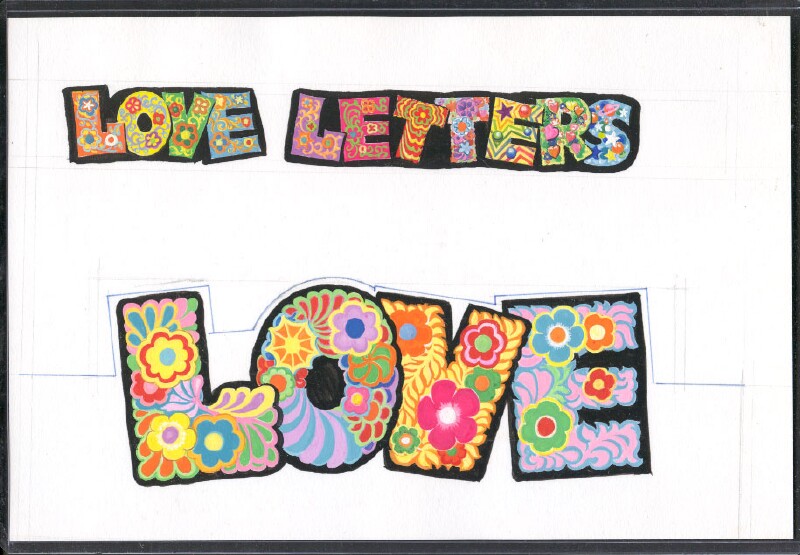 LOVE LETTERS
LOVE